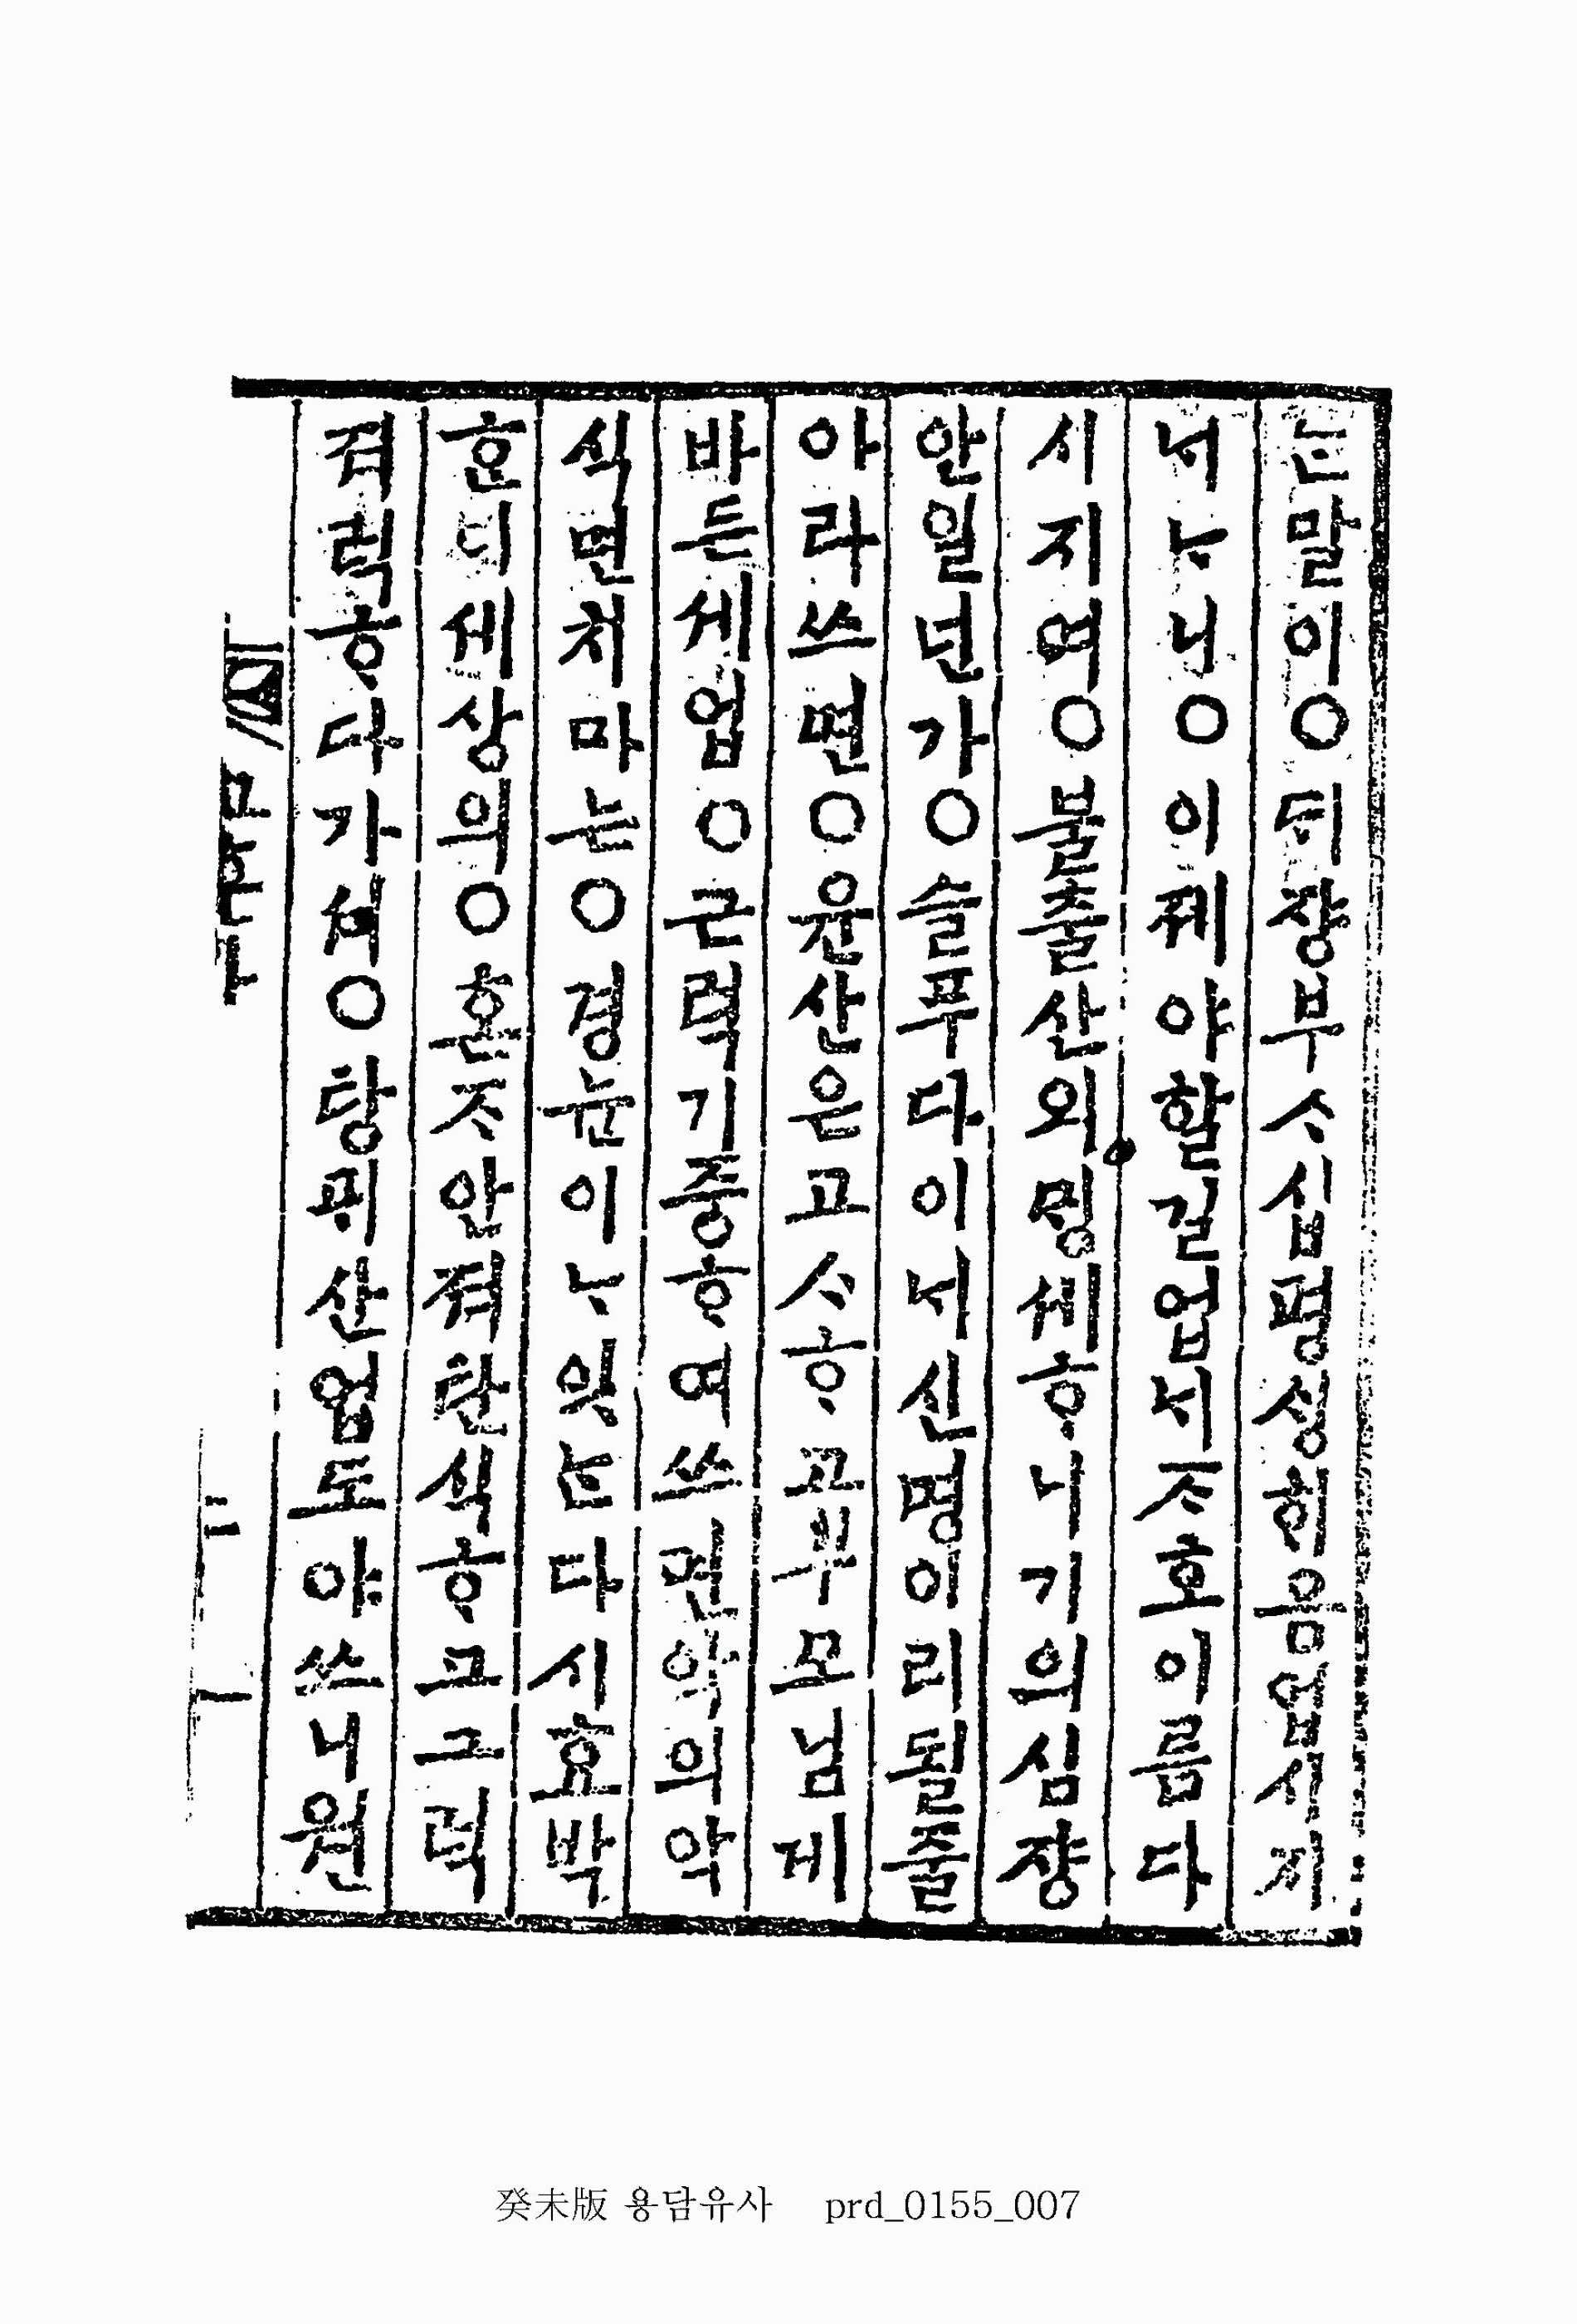 는말이○ᄃᆡ쟝부ᄉᆞ십평ᄉᆡᆼᄒᆡ음업시지
ᄂᆡᄂᆞ니○이졔야할길업ᄂᆡᄌᆞ호이름다
시지여○불츌산외ᄆᆡᆼ셰ᄒᆞ니기의심쟝
안일넌가○슬푸다이ᄂᆡ신명이리될줄
아라쓰면○윤산은고ᄉᆞᄒᆞ고부모님게
바든셰업○근력기즁ᄒᆞ여쓰면악의악
식면치마는○경뉸이ᄂᆞ잇ᄂᆞᆫ다시효박
ᄒᆞᆫ이세상의○혼ᄌᆞ안져탄식ᄒᆞ고그럭
져럭ᄒᆞ다가셔○탕ᄑᆡ산업도야쓰니원
癸未版 용담유사 prd_0155_007